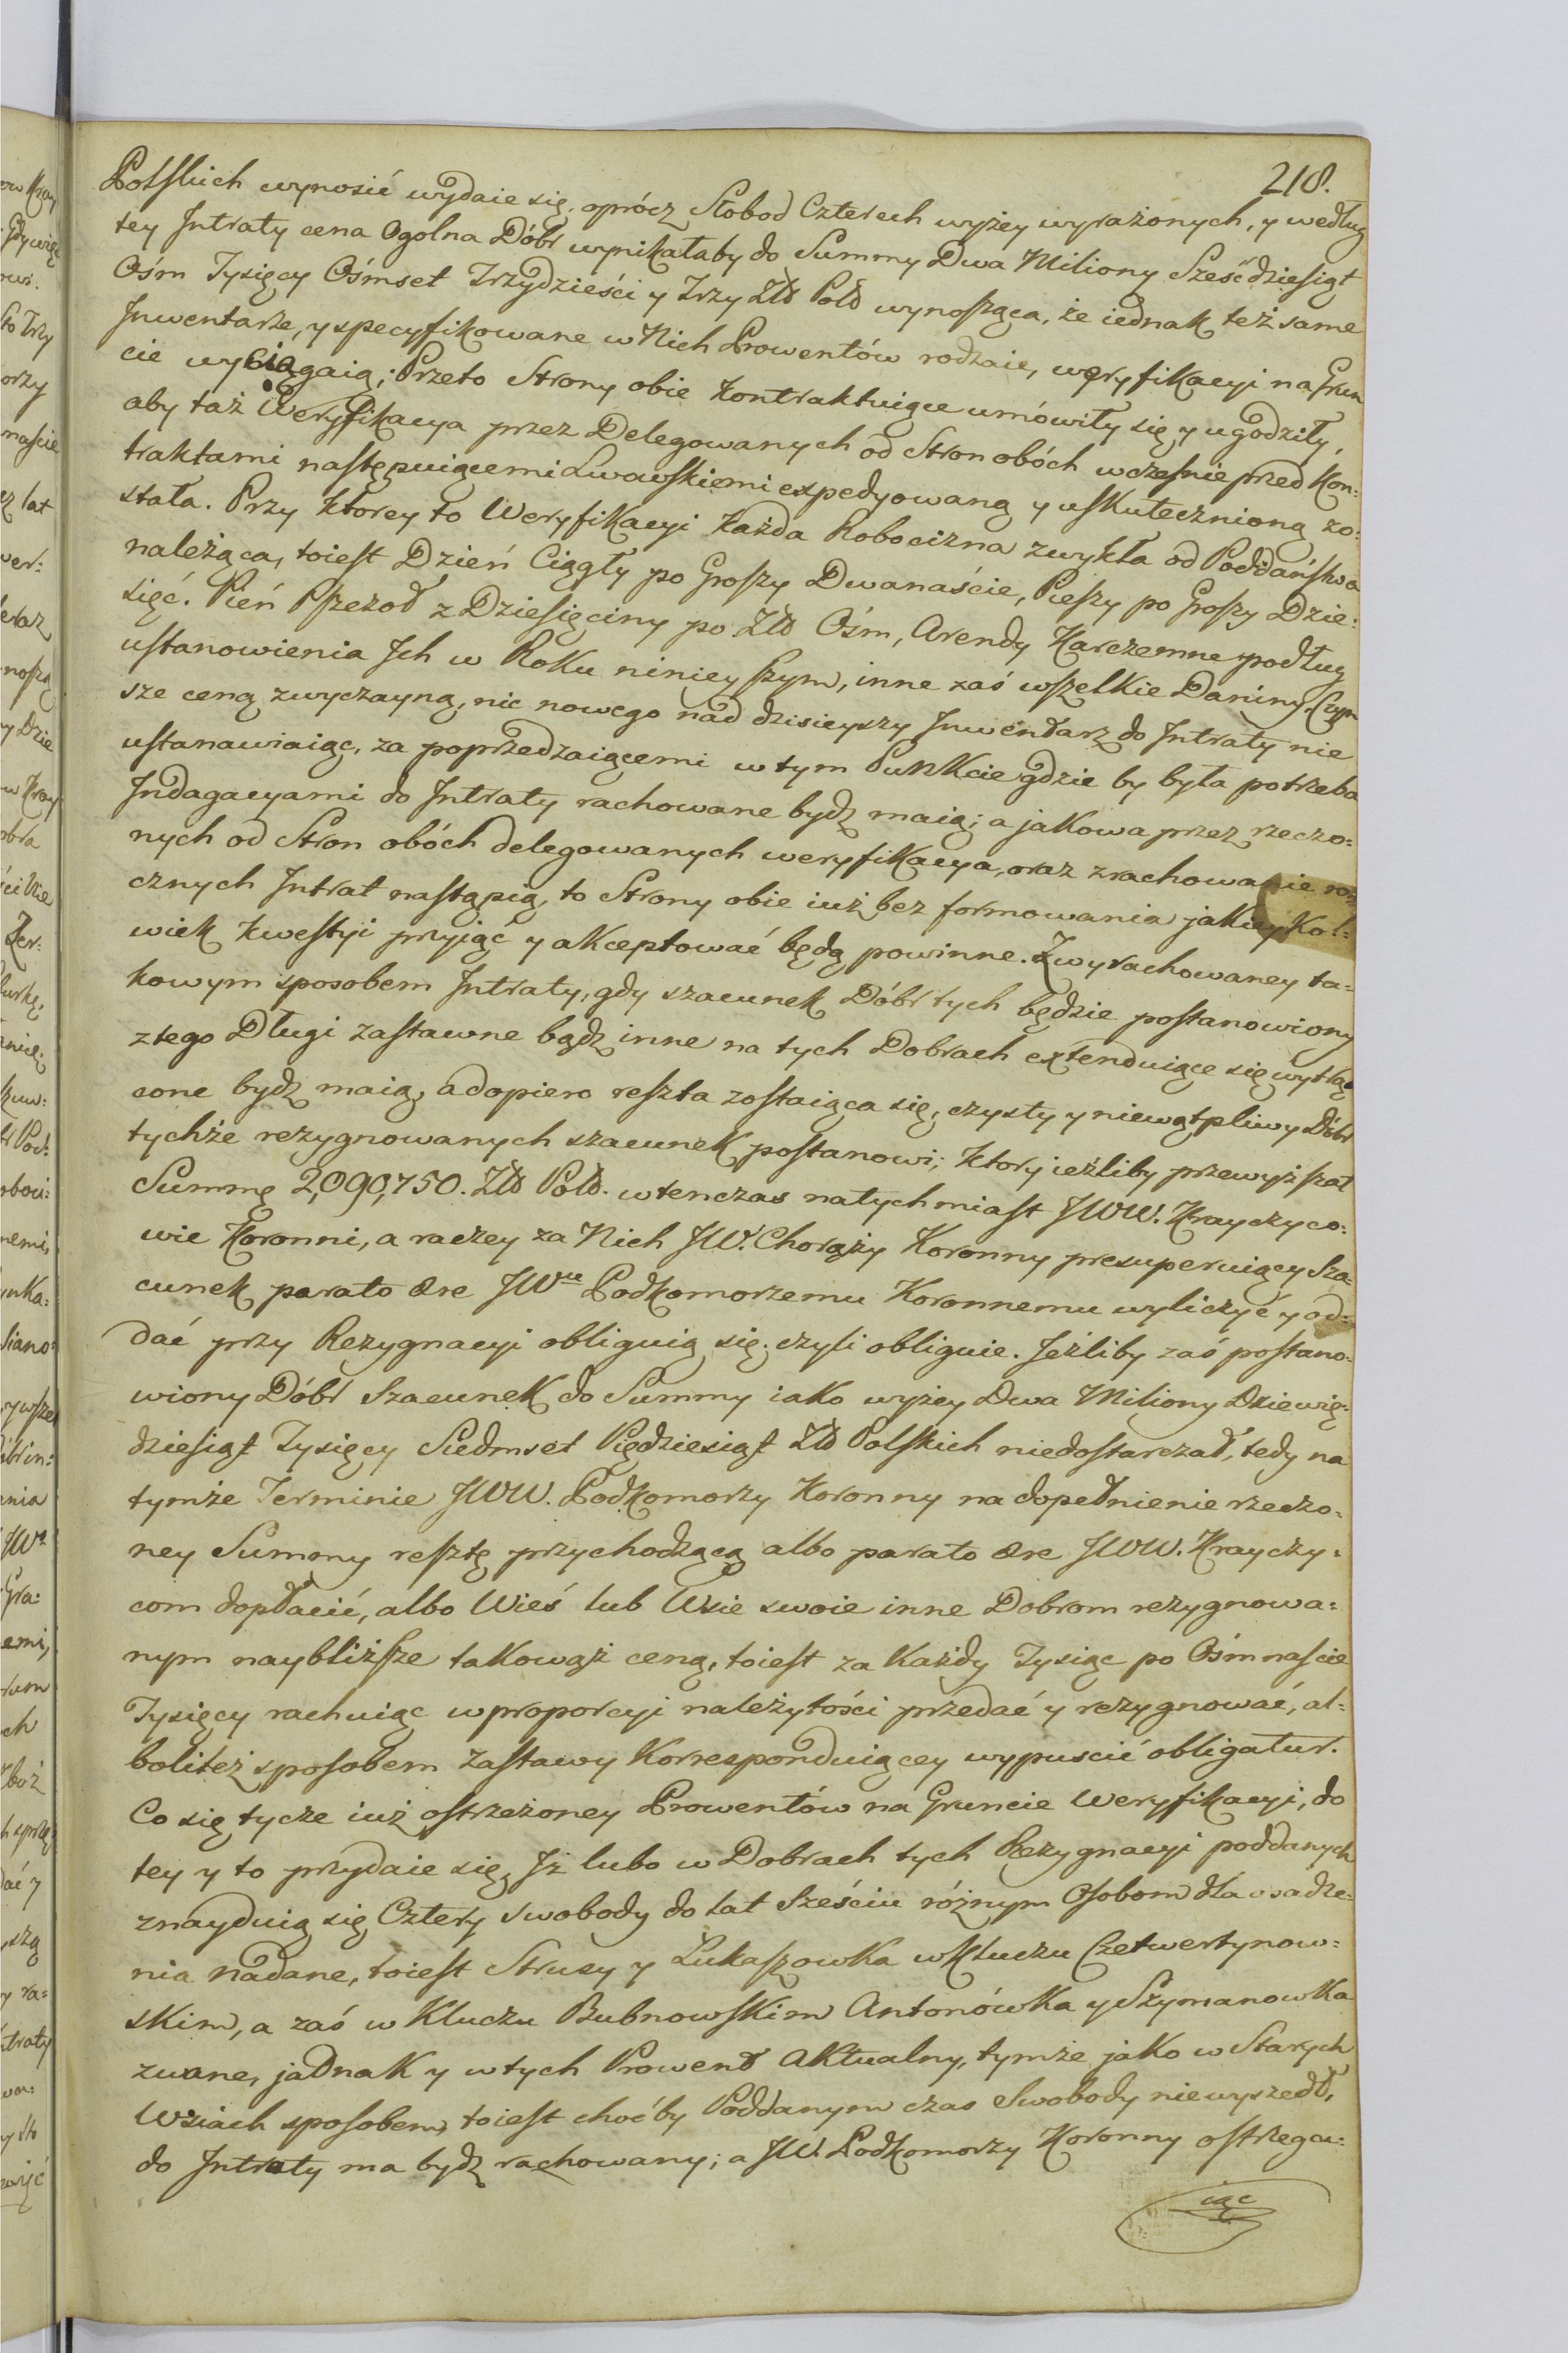 218.
Polskich wynosić wydaie się, oprócz Słobod Czterech wyżey wyrażonych, y według
tey Intraty cena Ogolna Dóbr wynikałaby do Summy Dwa Miliony Sześćdziesiąt
Ośm Tysięcy Ośmset Trzydzieści y Trzy Złł Poll wynosząca, że iednak też same
Inwentarze, y specyfikowane w Nich Prowentów rodzaie, weryfikacyi na Grun
cie wyciągaią; Przeto Strony obie kontraktuiące umówiły się y ugodziły,
aby taż Weryfikacya przez Delegowanych od Stron obóch wcześnie przed Kon:
traktami następuiącemi Lwowskiemi expedyowaną y uskutecznioną zo:
stała. Przy ktorey to Weryfikacyi każda Robocizna zwykła od Poddaństwa
należąca, toiest Dzień Ciągły po Groszy Dwanaście, Pieszy po Groszy Dzie:
sięć. Pień Pszczoł z Dziesięciny po Złł Ośm, Arendy Karczemne podług
ustanowienia Ich w Roku ninieyszym, inne zaś wszelkie Daniny, Czyn
sze ceną zwyczayną, nic nowego nad dzisieyszy Inwentarz do Intraty nie
ustanawiaiąc, za poprzedzaiącemi w tym Punkcie gdzie by była potrzeba
Indagacyami do Intraty rachowane bydź maią; a jakowa przez rzeczo:
nych od Stron obóch delegowanych weryfikacya, oraz zrachowanie ro
cznych Intrat nastąpią, to Strony obie iuż bez formowania jakieykol:
wiek kwestyi przyiąć y akceptować będą powinne. Z wyrachowaney ta:
kowym sposobem Intraty, gdy szacunek Dóbr tych będzie postanowiony
z tego Długi zastawne bądź inne na tych Dobrach extenduiące się wytrą
cone bydź maią, a dopiero reszta zostaiąca się, czysty y niewątpliwy Dóbr
tychże rezygnowanych szacunek postanowi; ktory ieżliby przewyższał
Summę 2,090,750. Złł Poll. wtenczas natychmiast JWW. Krayczyco:
wie Koronni, a raczey za Nich JW. Chorąży Koronny presuperuiący Sza:
cunek parato ære JWu Podkomorzemu Koronnemu wyliczyć y od:
dać przy Rezygnacyi obliguią się, czyli obliguie. Jeżliby zaś postano:
wiony Dóbr Szacunek do Summy iako wyżey Dwa Miliony Dziewię:
dziesiąt Tysięcy Siedmset Pięćdziesiąt Złł Polskich niedostarczał, tedy na
tymże Terminie JWW. Podkomorzy Koronny na dopełnienie rzeczo:
ney Summy resztę przychodzącą albo parato ære JWW. Krayczy:
com dopłacić, albo Wieś lub Wsie swoie inne Dobrom rezygnowa:
nym naybliższe takowąż ceną, toiest za każdy Tysiąc po Ośmnaście
Tysięcy rachuiąc w proporcyi należytości przedać y rezygnować, al:
boliteż sposobem zastawy korresponduiącey wypuscić obligatur.
Co się tycze iuż ostrzeżoney Prowentów na Gruncie Weryfikacyi, do
tey y to przydaie się, Iż lubo w Dobrach tych Rezygnacyi poddanych
znayduią się Cztery Swobody do lat Sześciu różnym Osobom dla osadze:
nia nadane, toiest Strusy y Łukaszowka w kluczu Czetwertynow:
skim, a zaś w Kluczu Bubnowskim Antonówka y Szymanowka
zwane, jadnak y w tych Prowent Aktualny, tymże jako w Starych
Wsiach sposobem, toiest choćby Poddanym czas Swobody niewyszedł,
do Intraty ma bydź rachowany; a JW. Podkomorzy Koronny ostrzega:
iąc